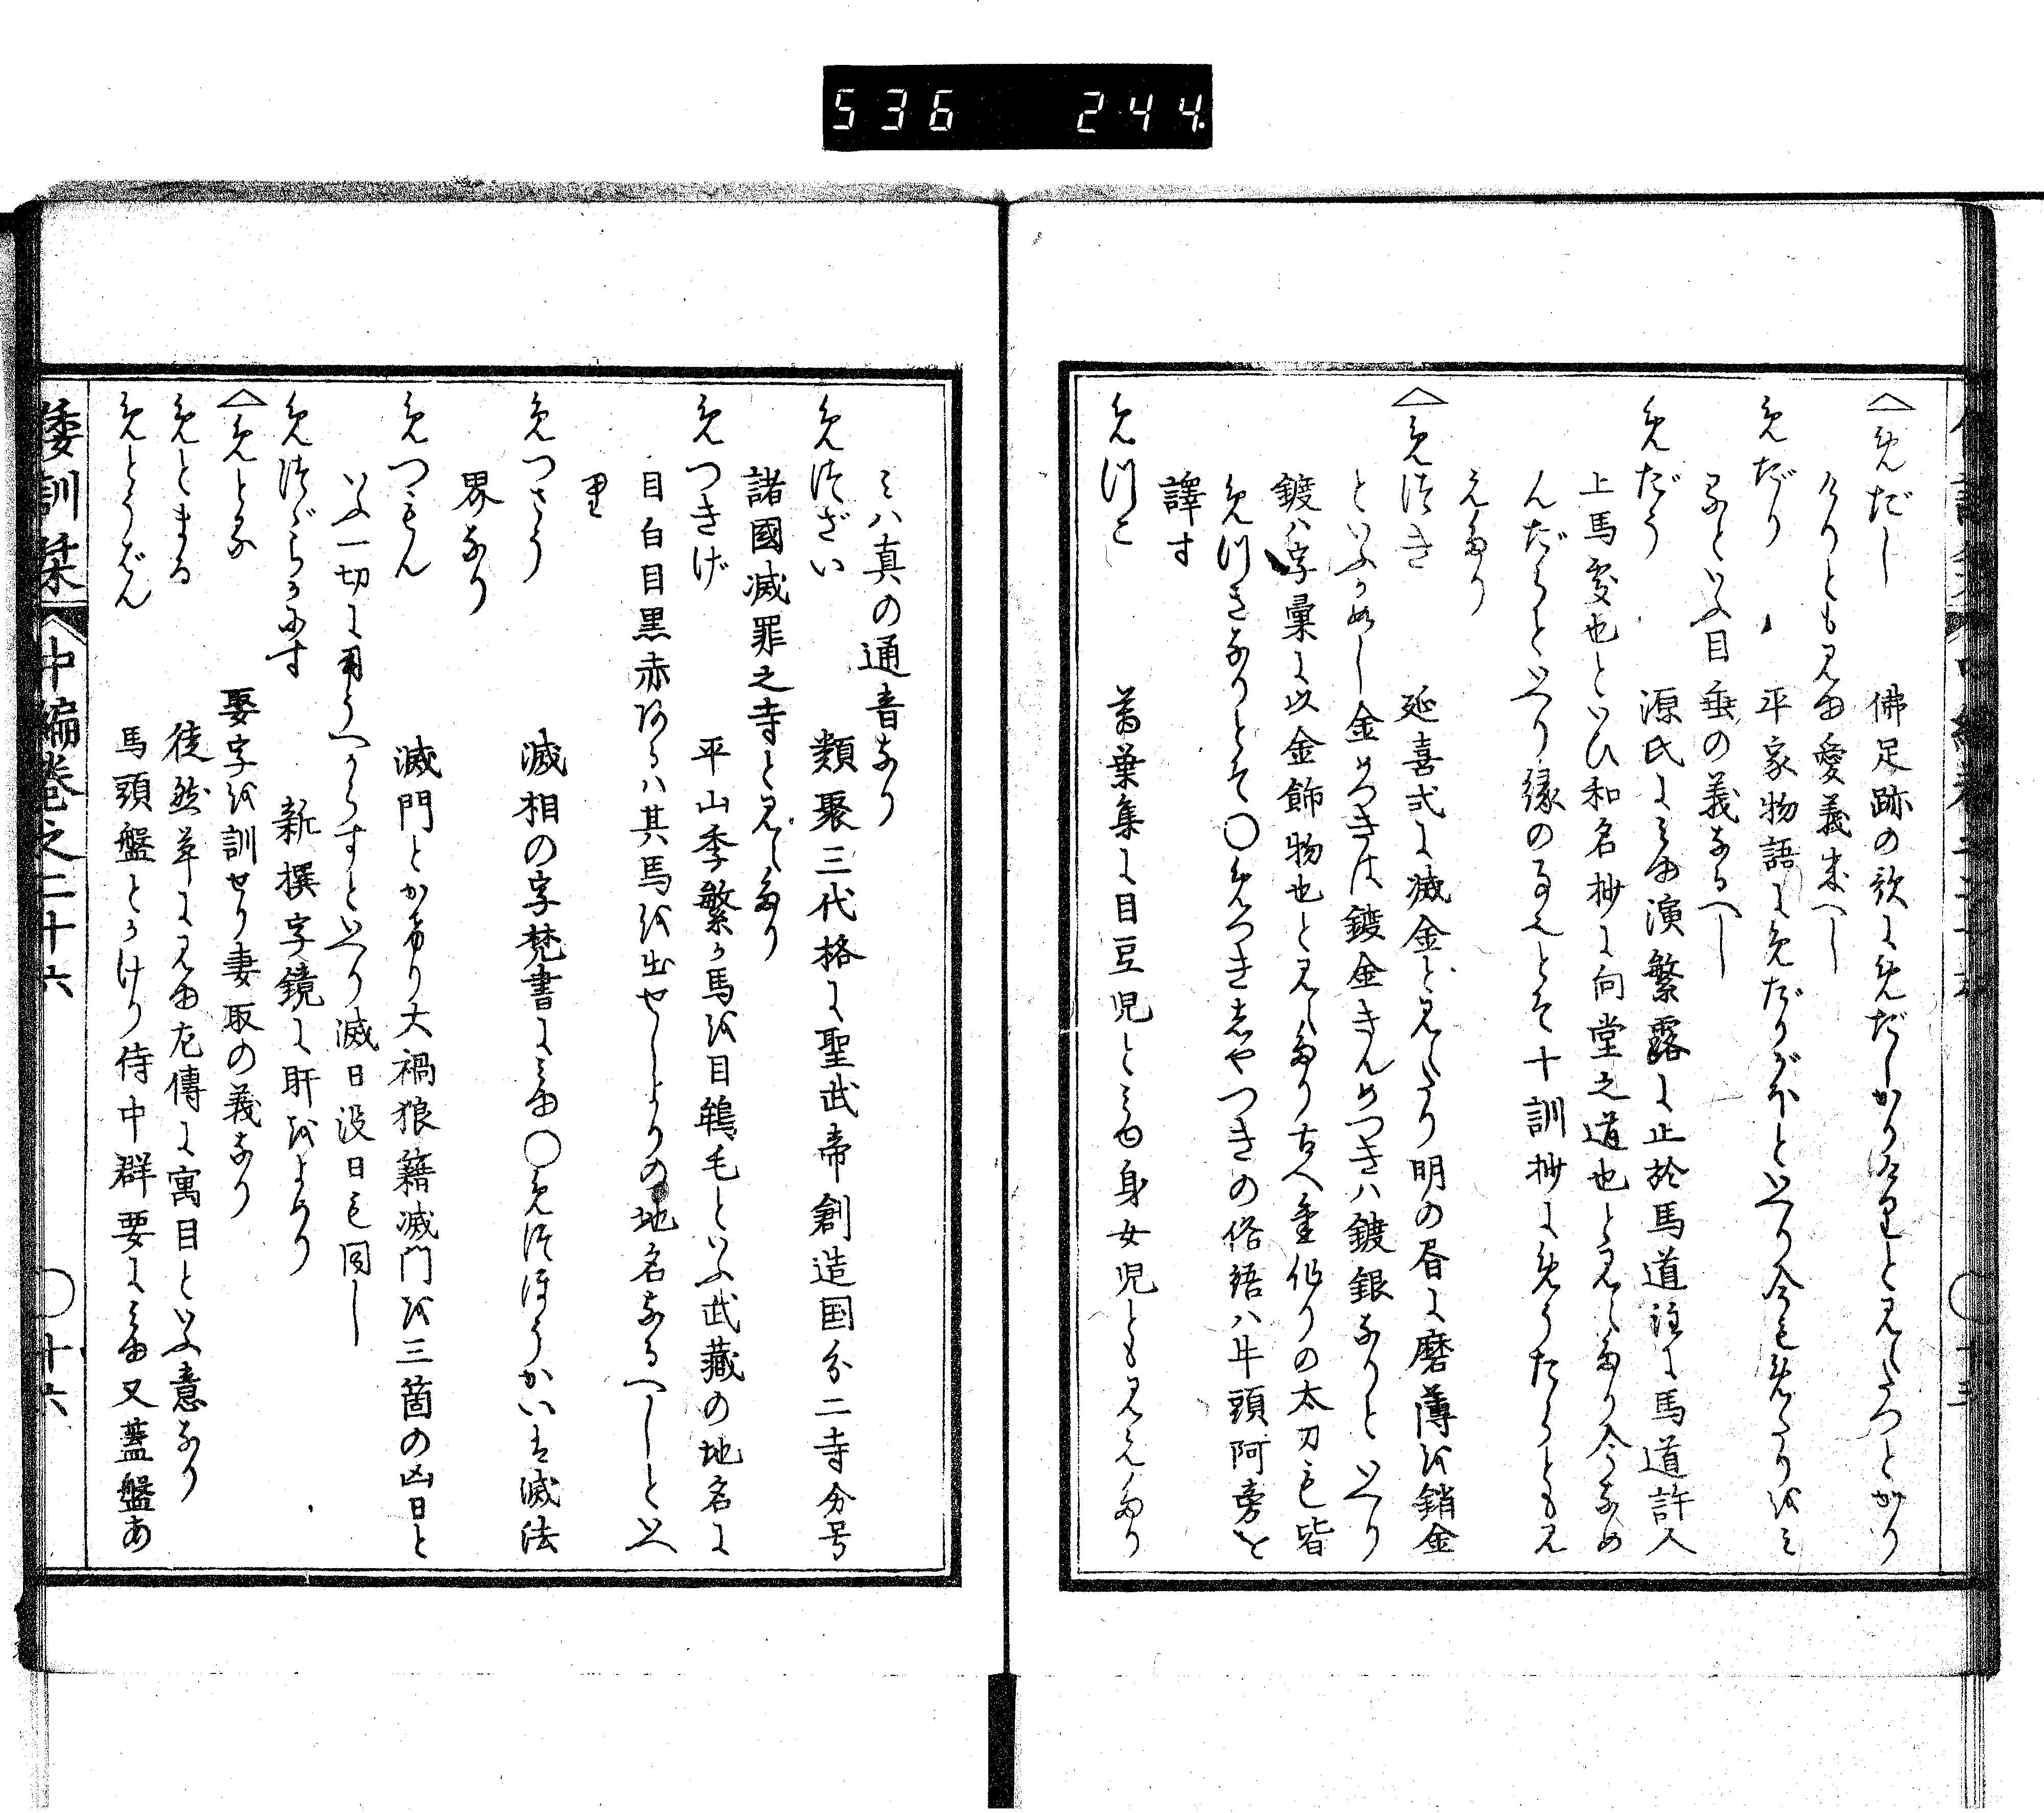 536 244
めだし 佛足跡の歌にめだしかりけりと見えたつとがり
けりとも見ゆ愛義成へし
めだり 平家物語にめだりがほといへり今もめたりをミ
るといふ目垂の義なるへし
めだう 源氏にミゆ演繁露に止於馬道註に馬道許人
上馬處也といひ和名抄に向堂之道也と見えたり今なめ
んだうといへり縁の事也とそ十訓抄にめうたうとも見
えたり
めつき 延喜式に滅金と見えたり明の書に磨薄を銷金
といふかめし金めつきは鍍金きんめつきハ鍍銀なりといへり
鍍ハ字彙に以金飾物也と見えたり古へ金作りの太刀も皆
めつきなりとそ〇めつきしやつきの俗語ハ牛頭阿旁を
譯す
めづこ 萬葉集に目豆児とミゆ身女児とも見えたり
ミハ真の通音なり
めつざい 類聚三代格に聖武帝創造国分二寺分号
諸國滅罪之寺と見えたり
めつきげ 平山季繁か馬を目鴾毛といふ武蔵の地名に
目白目黒赤あるハ其馬を出せしよりの地名なるへしといへ
り
めつさう 滅相の字梵書にミゆ〇めつほうかいは滅法
界なり
めつもん 滅門とかけり大禍狼藉滅門を三箇の凶日と
いふ一切に用うへからすといへり滅日没日も同し
めつごらかす 新撰字鏡に盱をよめり
めとる 娶字を訓せり妻取の義なり
めとまる 徒然草に見ゆ左傳に寓目といふ意なり
めとうばん 馬頭盤とかけり侍中群要にミゆ又蓋盤あ
倭訓栞 中編巻之二十六 〇十六